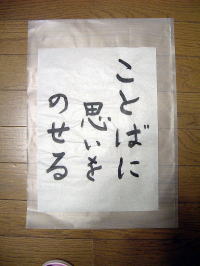 ことばに
思いを
のせる